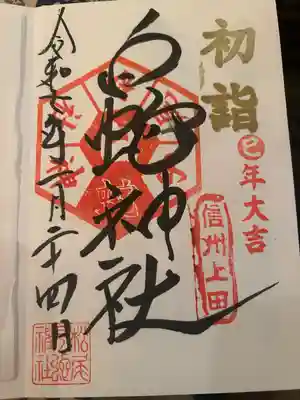 初詣
巳年大吉
信州上田
白蛇神社
令和七年二月二十四日